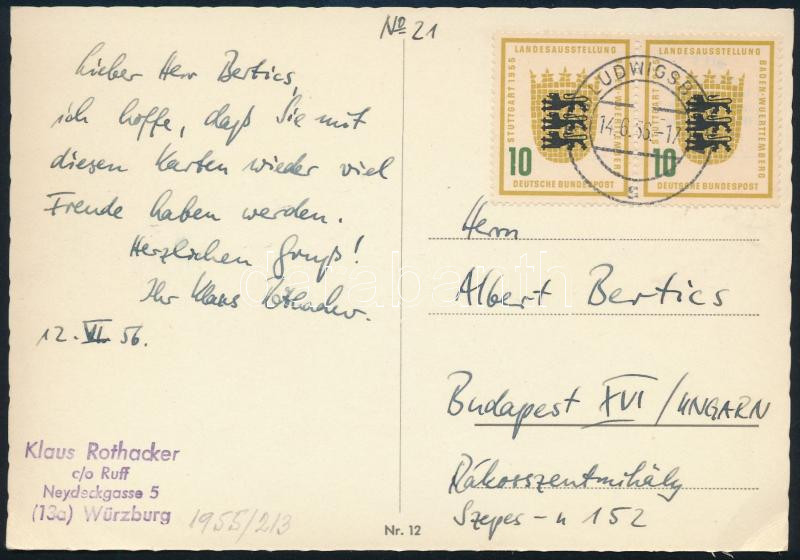 No 21
Lieber Herr Bertics,
ich hoffe, daß Sie mit
diesen Karten wieder viel
Freude haben werden.
Herzlichen Gruß!
Ihr Klaus Rothacker.
12. VI. 56.
Klaus Rothacker
c/o Ruff
Neydeckgasse 5
(13a) Würzburg
1955/213
Nr. 12
LANDESAUSSTELLUNG
STUTTGART 1955
10
DEUTSCHE BUNDESPOST
LANDESAUSSTELLUNG
STUTTGART 1955
BADEN-WUERTTEMBERG
10
DEUTSCHE BUNDESPOST
LUDWIGSB
14.6.56-17
Herrn
Albert Bertics
Budapest XVI / UNGARN
Rákosszentmihály
Szepes-u 152
darabanth